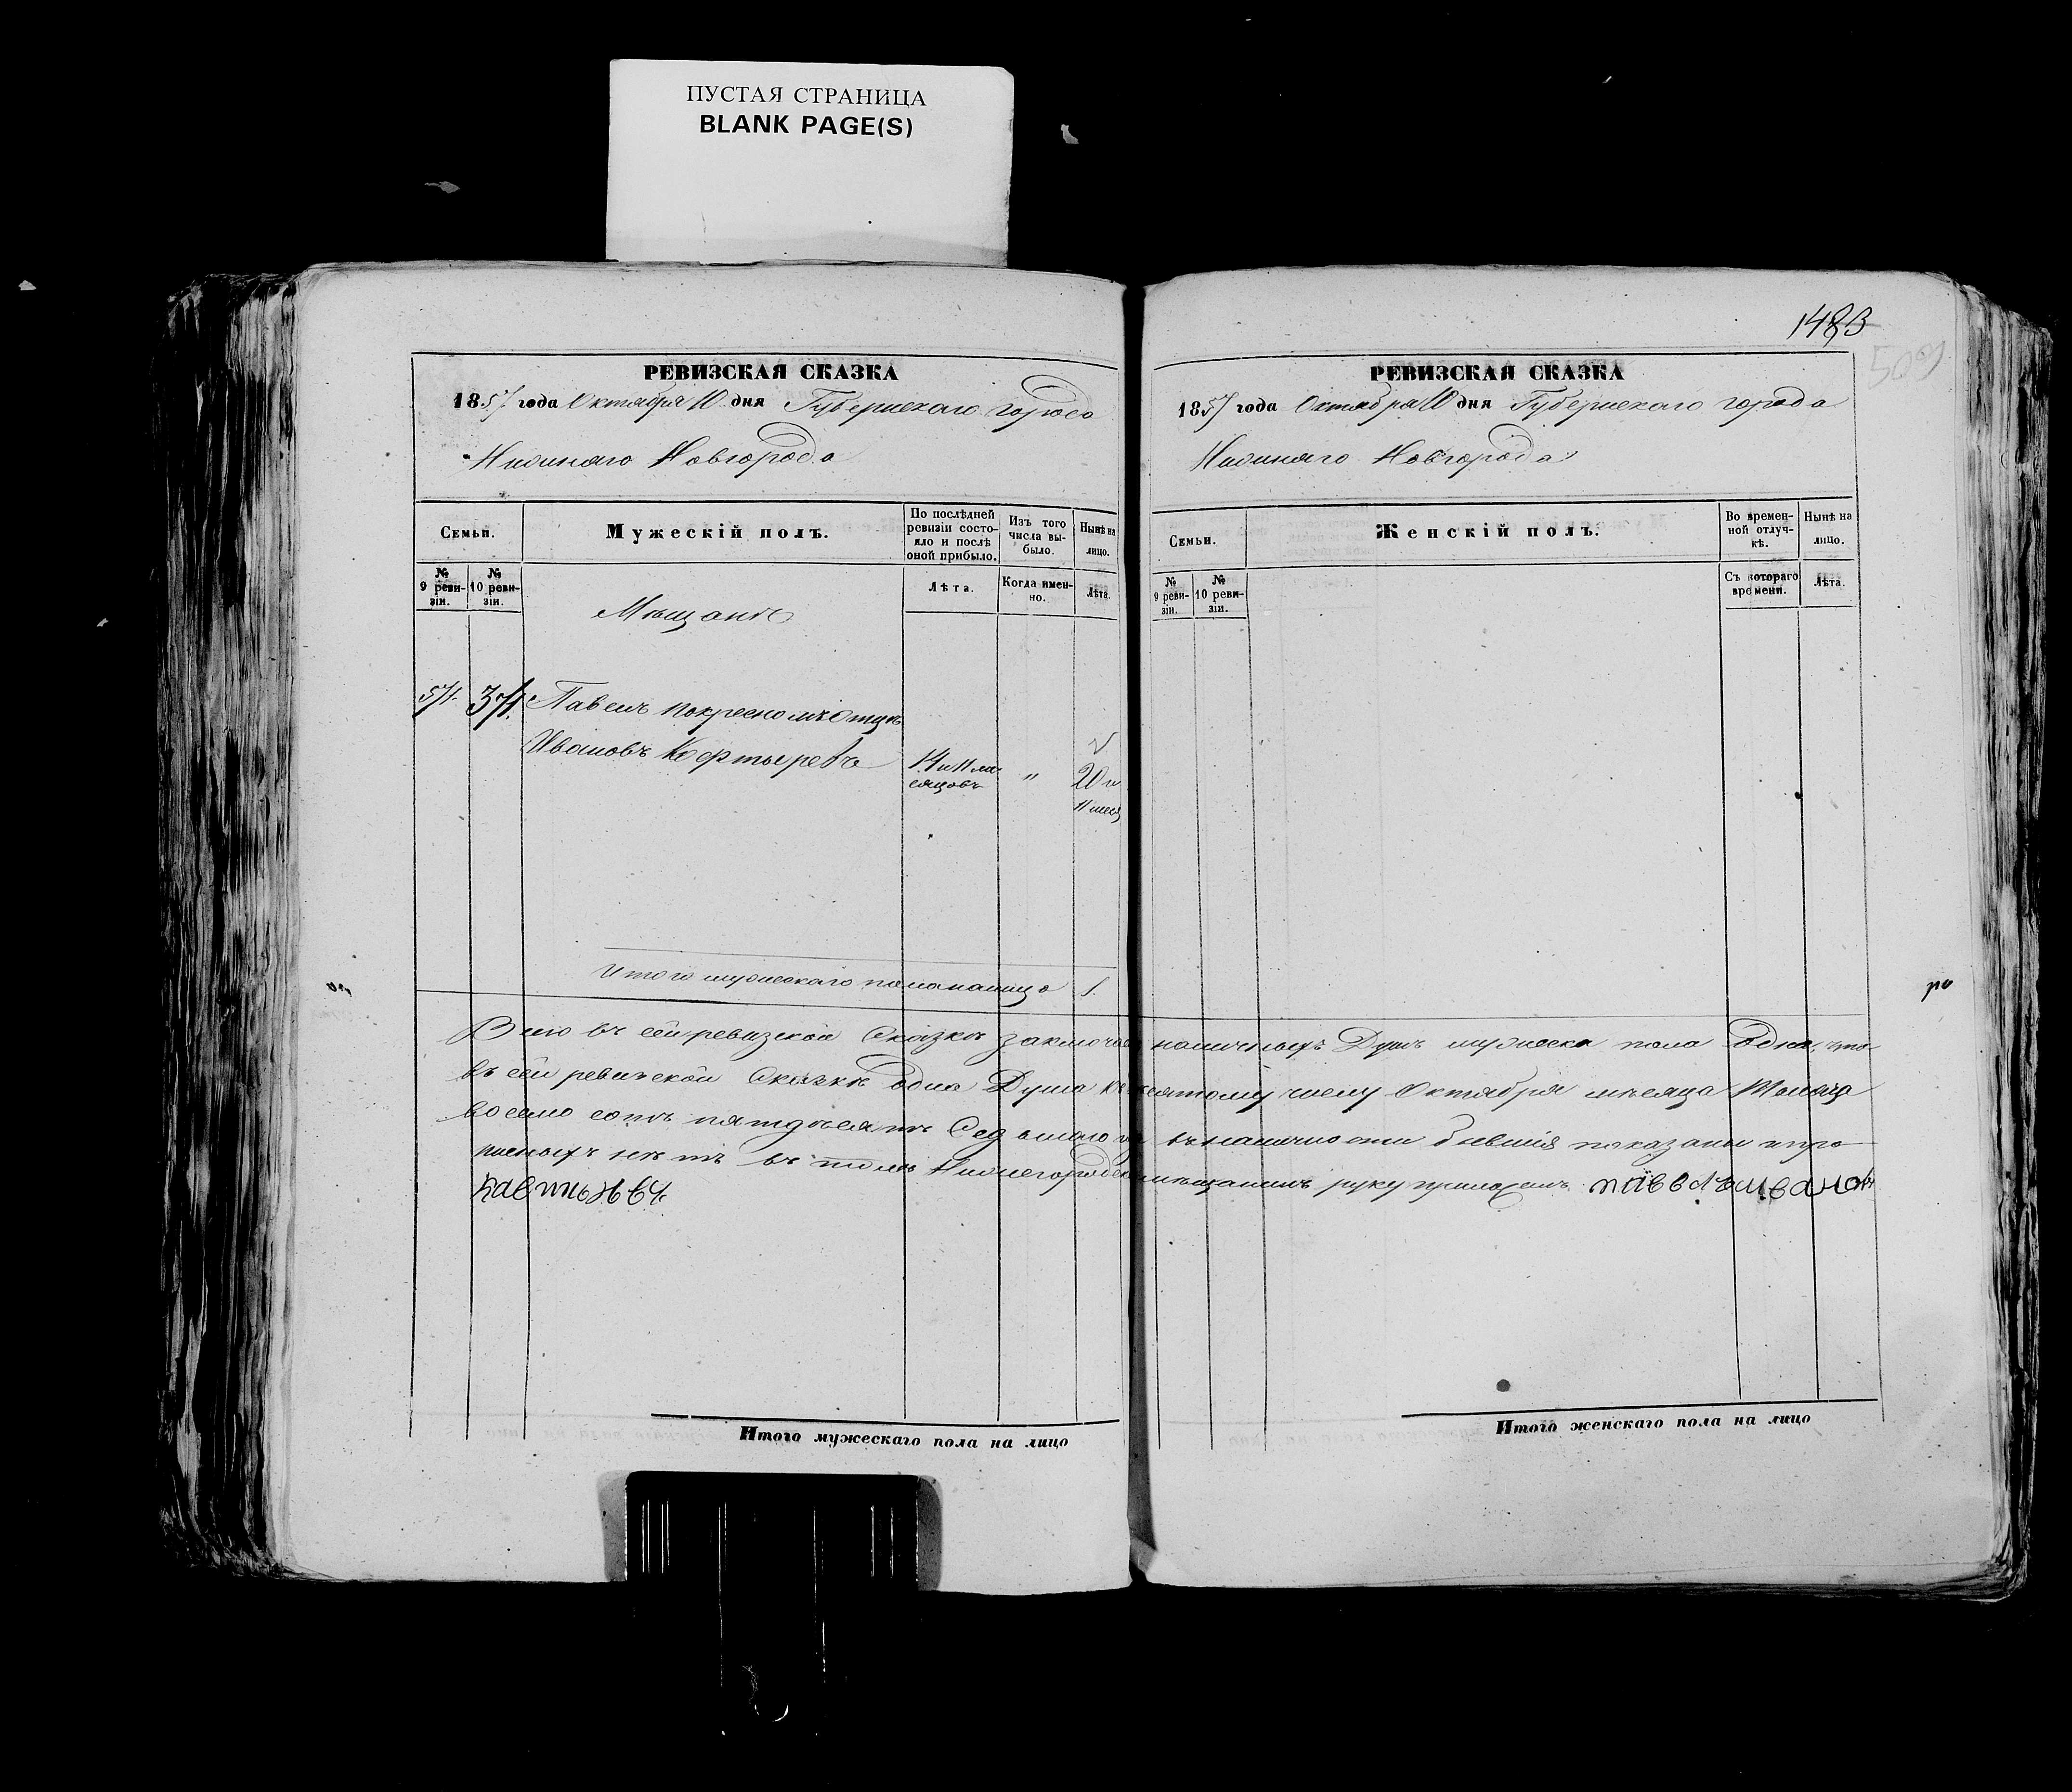 ПУСТАЯ СТРАНИЦА
BLANK PAGE(S)
1483
509
РЕВИЗСКАЯ СКАЗКА
1857 года Октября 10 дня Губернскаго города
Нижняго Новгорода
Семьи.
Мужескій полъ.
По послѣдней ревизіи состояло и послѣ оной прибыло.
Изъ того числа выбыло.
Нынѣ на лицо.
№ 9 ревизіи.
№ 10 ревизіи.
Мѣщане
Лѣта.
Когда именно.
Лѣта.
Павелъ покресному Отцу
Ивановъ
14 и 11 месяцовъ
"
20 и
11 месяц
Итого мужескаго пола налицо 1.
РЕВИЗСКАЯ СКАЗКА
1857 года Октября 10 дня Губернскаго города
Нижняго Новгорода
Семьи.
Женскій полъ.
Во временной отлучкѣ.
Нынѣ на лицо.
№ 9 ревизіи.
№ 10 ревизіи.
Съ котораго времени.
Лѣта.
Всего въ сей ревизской Сказке наличныхъ Душъ мужеска пола одна, что
въ сей ревизской Сказке одна Душа къ десятому числу Октября месяца Тысяча
восемь сотъ пятдесятъ Седьмого въ наличности бывшая показана и про
нетъ въ томъ мещанинъ руку приложилъ
Итого мужескаго пола на лицо
Итого женскаго пола на лицо